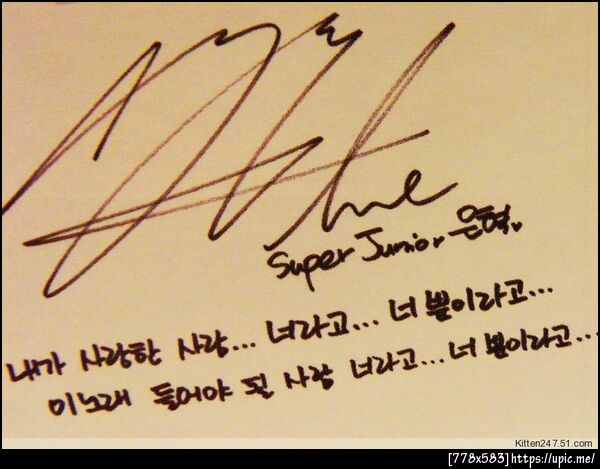 Super Junior 은혁
내가 사랑한 사람... 너라고... 너 뿐이라고...
이 노래 들어야 될 사람 너라고... 너 뿐이라고...
Kitten247.51.com
[778x583]https://upic.me/